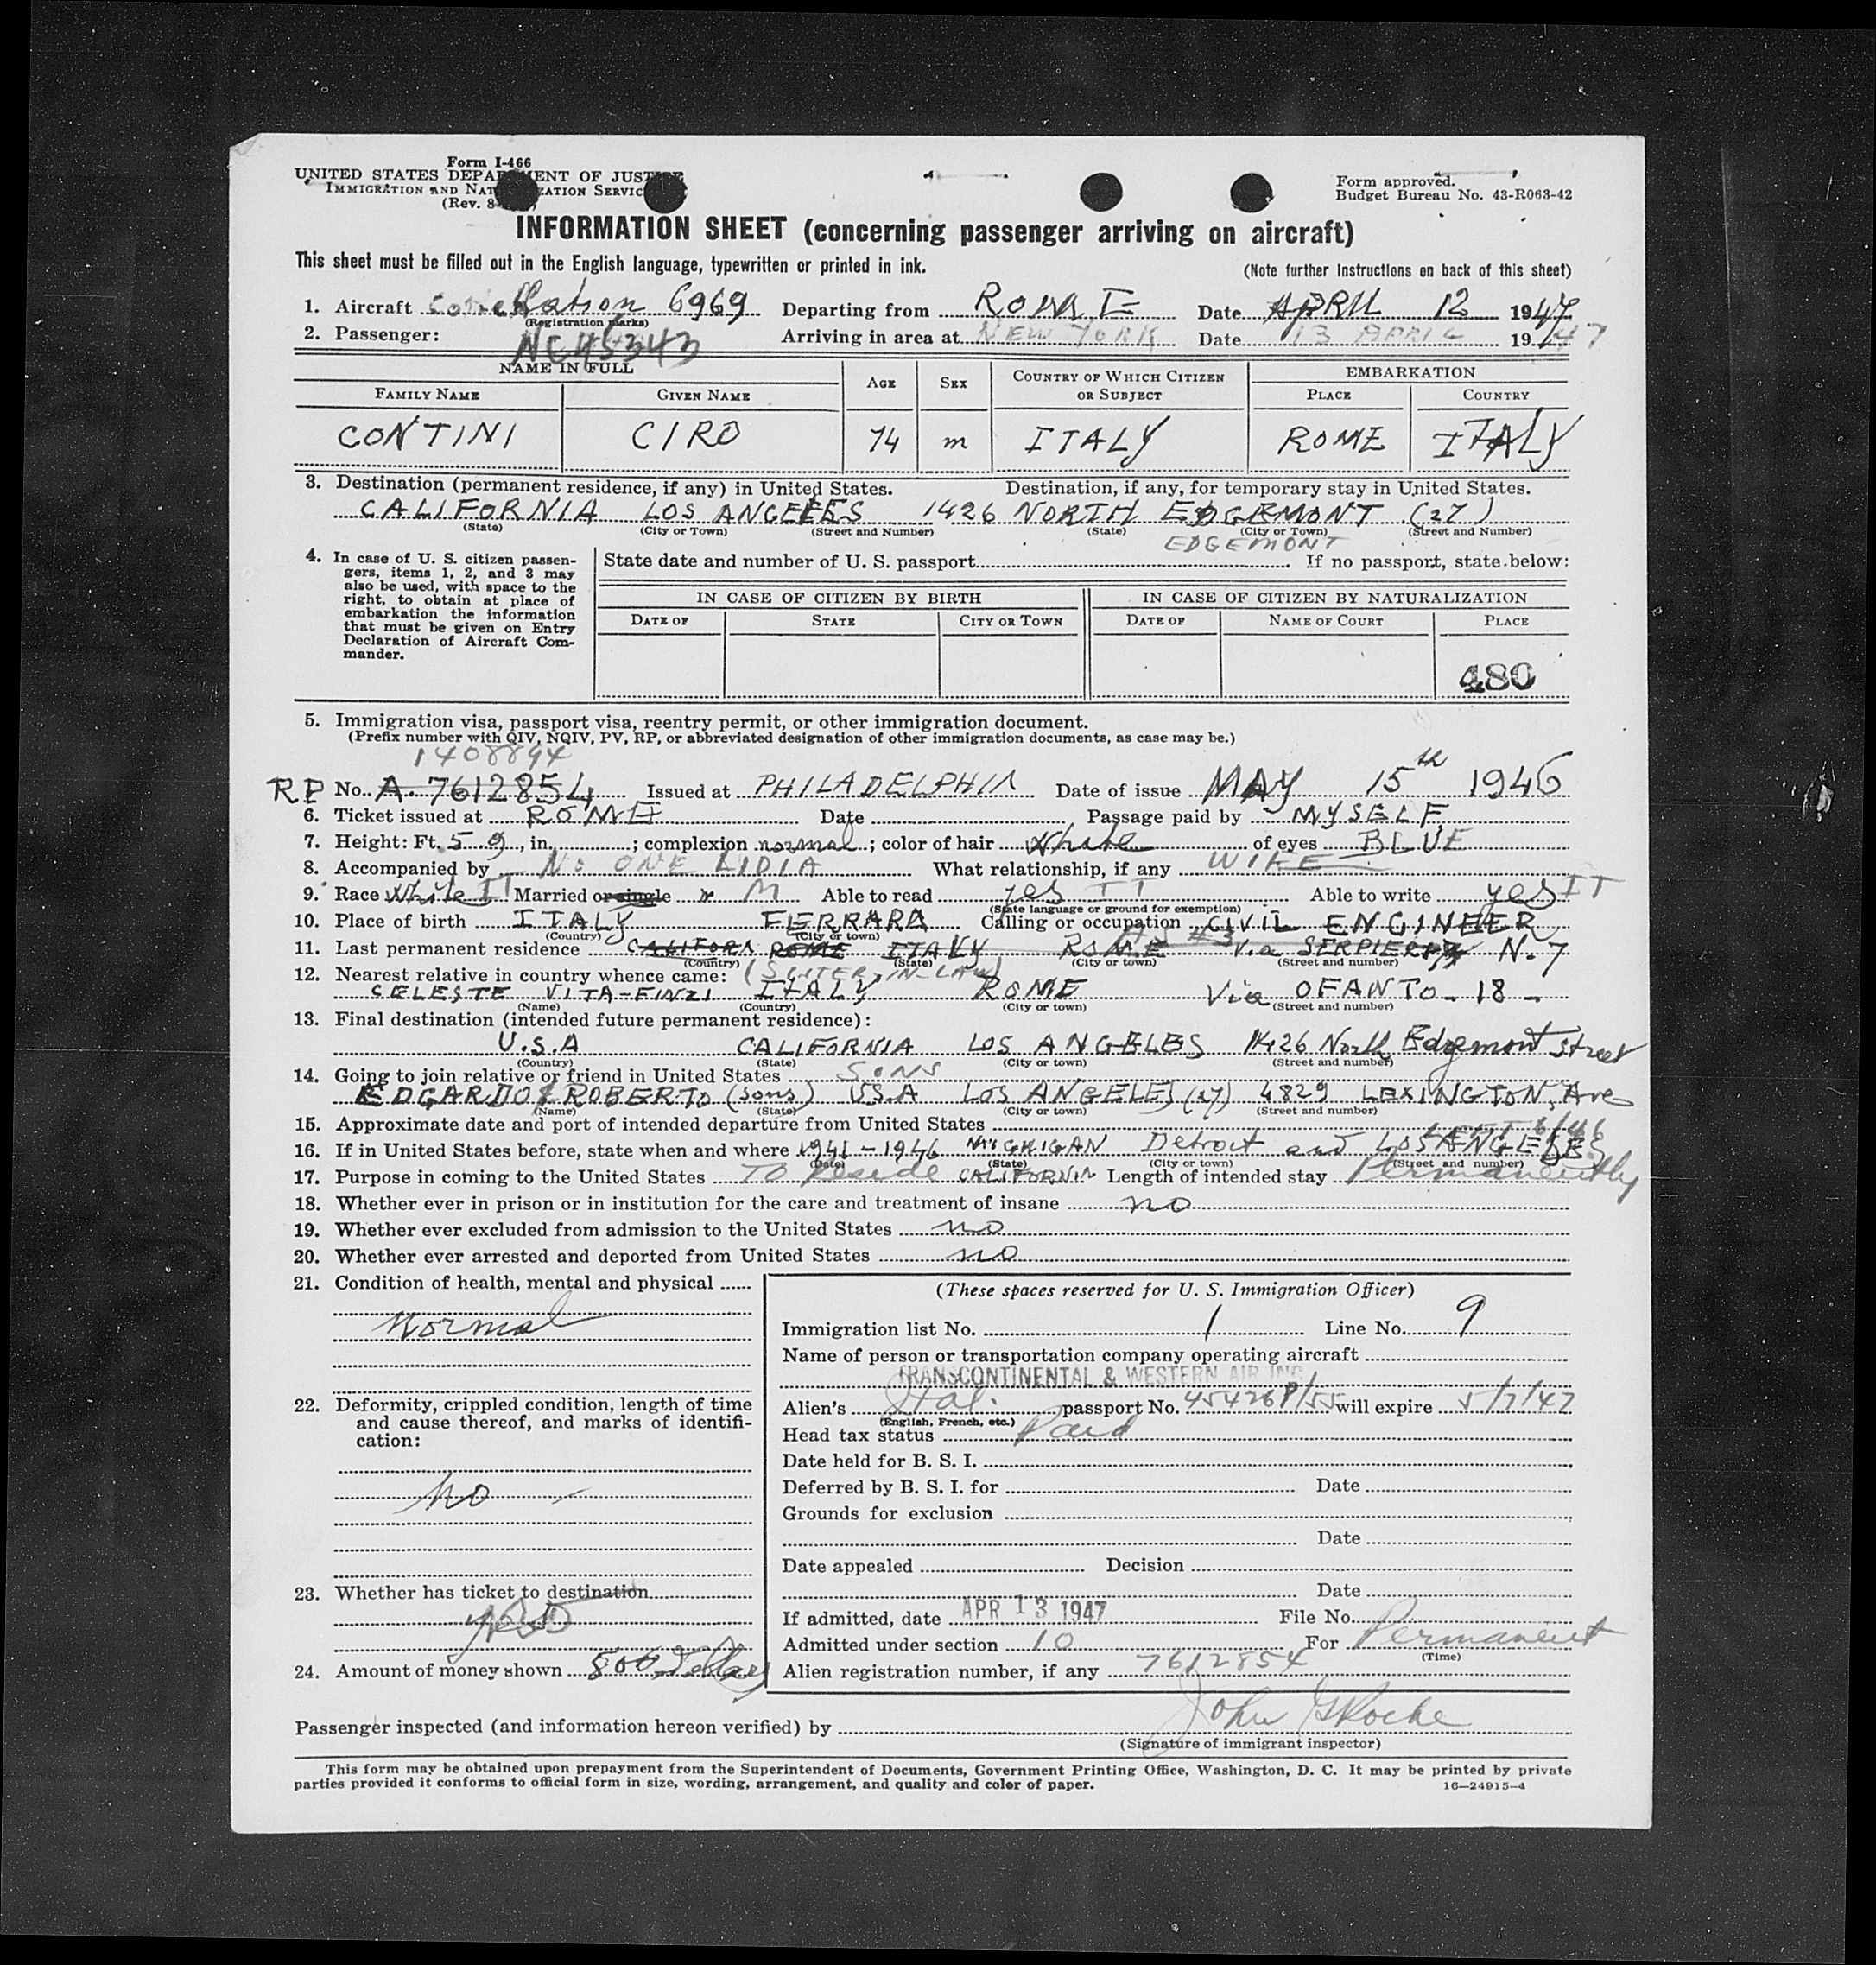 Form I-466
UNITED STATES DEPARTMENT OF JUSTICE
IMMIGRATION AND NATURALIZATION SERVICE
(Rev. 8-
Form approved.
Budget Bureau No. 43-R063-42
INFORMATION SHEET (concerning passenger arriving on aircraft)
This sheet must be filled out in the English language, typewritten or printed in ink.
(Note further instructions on back of this sheet)
1. Aircraft Constellation 6969 Departing from ROME Date APRIL 12 1947
(Registration marks)
2. Passenger: NC45343 Arriving in area at NEW YORK Date 13 APRIL 1947
NAME IN FULL AGE SEX COUNTRY OF WHICH CITIZEN OR SUBJECT EMBARKATION
FAMILY NAME GIVEN NAME PLACE COUNTRY
CONTINI CIRO 74 m ITALY ROME ITALY
3. Destination (permanent residence, if any) in United States. Destination, if any, for temporary stay in United States.
CALIFORNIA LOS ANGELES 1426 NORTH EDGEMONT (27)
(State) (City or Town) (Street and Number) (State) (City or Town) (Street and Number)
EDGEMONT
4. In case of U. S. citizen passengers, items 1, 2, and 3 may
also be used, with space to the
right, to obtain at place of
embarkation the information
that must be given on Entry
Declaration of Aircraft Commander.
State date and number of U. S. passport If no passport, state below:
IN CASE OF CITIZEN BY BIRTH IN CASE OF CITIZEN BY NATURALIZATION
DATE OF STATE CITY OR TOWN DATE OF NAME OF COURT PLACE
480
5. Immigration visa, passport visa, reentry permit, or other immigration document.
(Prefix number with QIV, NQIV, PV, RP, or abbreviated designation of other immigration documents, as case may be.)
1408894
RP No. A. 7612854 Issued at PHILADELPHIA Date of issue MAY 15th 1946
6. Ticket issued at ROME Date Passage paid by MYSELF
7. Height: Ft. 5 9, in. ; complexion normal ; color of hair White of eyes BLUE
8. Accompanied by No ONE LIDIA What relationship, if any WIFE
9. Race White IT Married or single M Able to read yes IT Able to write yes IT
(State language or ground for exemption)
10. Place of birth ITALY FERRARA Calling or occupation CIVIL ENGINEER
(Country) (City or town)
11. Last permanent residence CALIFORN ROME ITALY ROME Via SERPIERI N. 7
(Country) (State) (City or town) (Street and number)
12. Nearest relative in country whence came: (SISTER-IN-LAW)
CELESTE VITA-FINZI ITALY ROME Via OFANTO - 18 -
(Name) (Country) (City or town) (Street and number)
13. Final destination (intended future permanent residence):
U.S.A CALIFORNIA LOS ANGELES 1426 North Edgemont Street
(Country) (State) (City or town) (Street and number)
14. Going to join relative or friend in United States SONS
EDGARDO & ROBERTO (sons) U.S.A LOS ANGELES (27) 4829 LEXINGTON, Ave
(Name) (State) (City or town) (Street and number)
15. Approximate date and port of intended departure from United States
16. If in United States before, state when and where 1941 - 1946 MICHIGAN Detroit and LOS ANGELES
(Date) (State) (City or town) (Street and number)
17. Purpose in coming to the United States To Reside CALIFORNIA Length of intended stay Permanently
18. Whether ever in prison or in institution for the care and treatment of insane no
19. Whether ever excluded from admission to the United States no
20. Whether ever arrested and deported from United States no
21. Condition of health, mental and physical
Normal
22. Deformity, crippled condition, length of time
and cause thereof, and marks of identification:
No -
23. Whether has ticket to destination
yes
24. Amount of money shown 800 Dollars
(These spaces reserved for U. S. Immigration Officer)
Immigration list No. 1 Line No. 9
Name of person or transportation company operating aircraft
TRANSCONTINENTAL & WESTERN AIR INC.
Alien's Ital. passport No. 45426P/55 will expire 5/7/47
(English, French, etc.)
Head tax status Paid
Date held for B. S. I.
Deferred by B. S. I. for Date
Grounds for exclusion
Date
Date appealed Decision
Date
If admitted, date APR 13 1947 File No.
Admitted under section 10 For Permanent
(Time)
Alien registration number, if any 7612854
Passenger inspected (and information hereon verified) by John G Roche
(Signature of immigrant inspector)
This form may be obtained upon prepayment from the Superintendent of Documents, Government Printing Office, Washington, D. C. It may be printed by private
parties provided it conforms to official form in size, wording, arrangement, and quality and color of paper. 16—24915-4